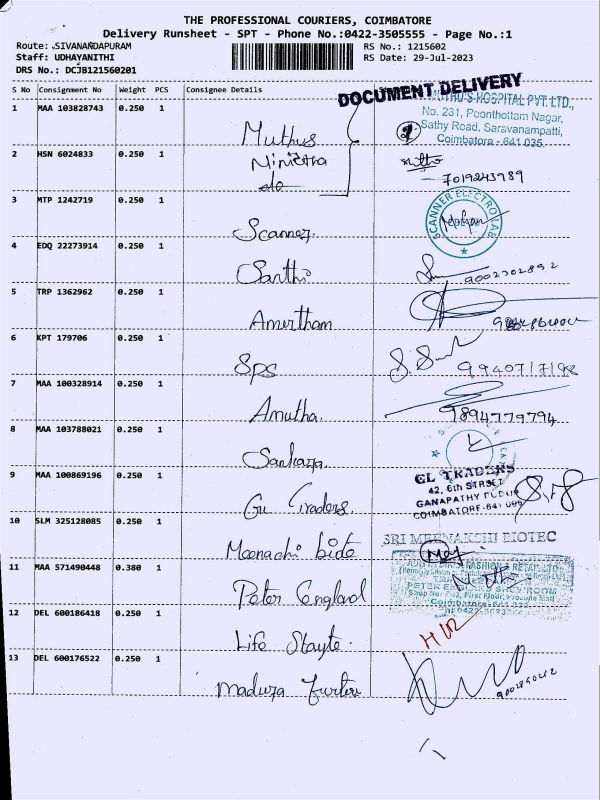 THE PROFESSIONAL COURIERS, COIMBATORE
Delivery Runsheet - SPT - Phone No.:0422-3505555 - Page No.:1
Route: .SIVANANDAPURAM RS No.: 1215602
Staff: UDHAYANITHI RS Date: 29-Jul-2023
DRS No.: DCJB121560201
S No Consignment No Weight PCS Consignee Details
DOCUMENT DELIVERY
1 MAA 103828743 0.250 1 Muthus
HOSPITAL PVT. LTD.,
No. 231, Poonthottam Nagar,
Sathy Road, Saravanampatti,
Coimbatore - 641 035.
2 HSN 6024833 0.250 1
do
7019243989
3 MTP 1242719 0.250 1 Scanner
SCANNER ELECTRO LAB
4 EDQ 22273914 0.250 1 Santhi
9002702892
5 TRP 1362962 0.250 1 Amirtham
6 KPT 179706 0.250 1 Sps
7 MAA 100328914 0.250 1 Anutha.
9894779794
8 MAA 103788021 0.250 1 Sankara
9 MAA 100869196 0.250 1 Traders
GL TRADERS
42, 6th STREET
GANAPATHY PUDUR
COIMBATORE-641 006
10 SLM 325128085 0.250 1 Meenachi
SRI MEENAKCHI BIOTEC
11 MAA 571490448 0.380 1 Peter England
PETER ENGLAND SHOWROOM
First Floor, Prozone Mall
Coimbatore
12 DEL 600186418 0.250 1 Life Stayte
13 DEL 600176522 0.250 1 Madura